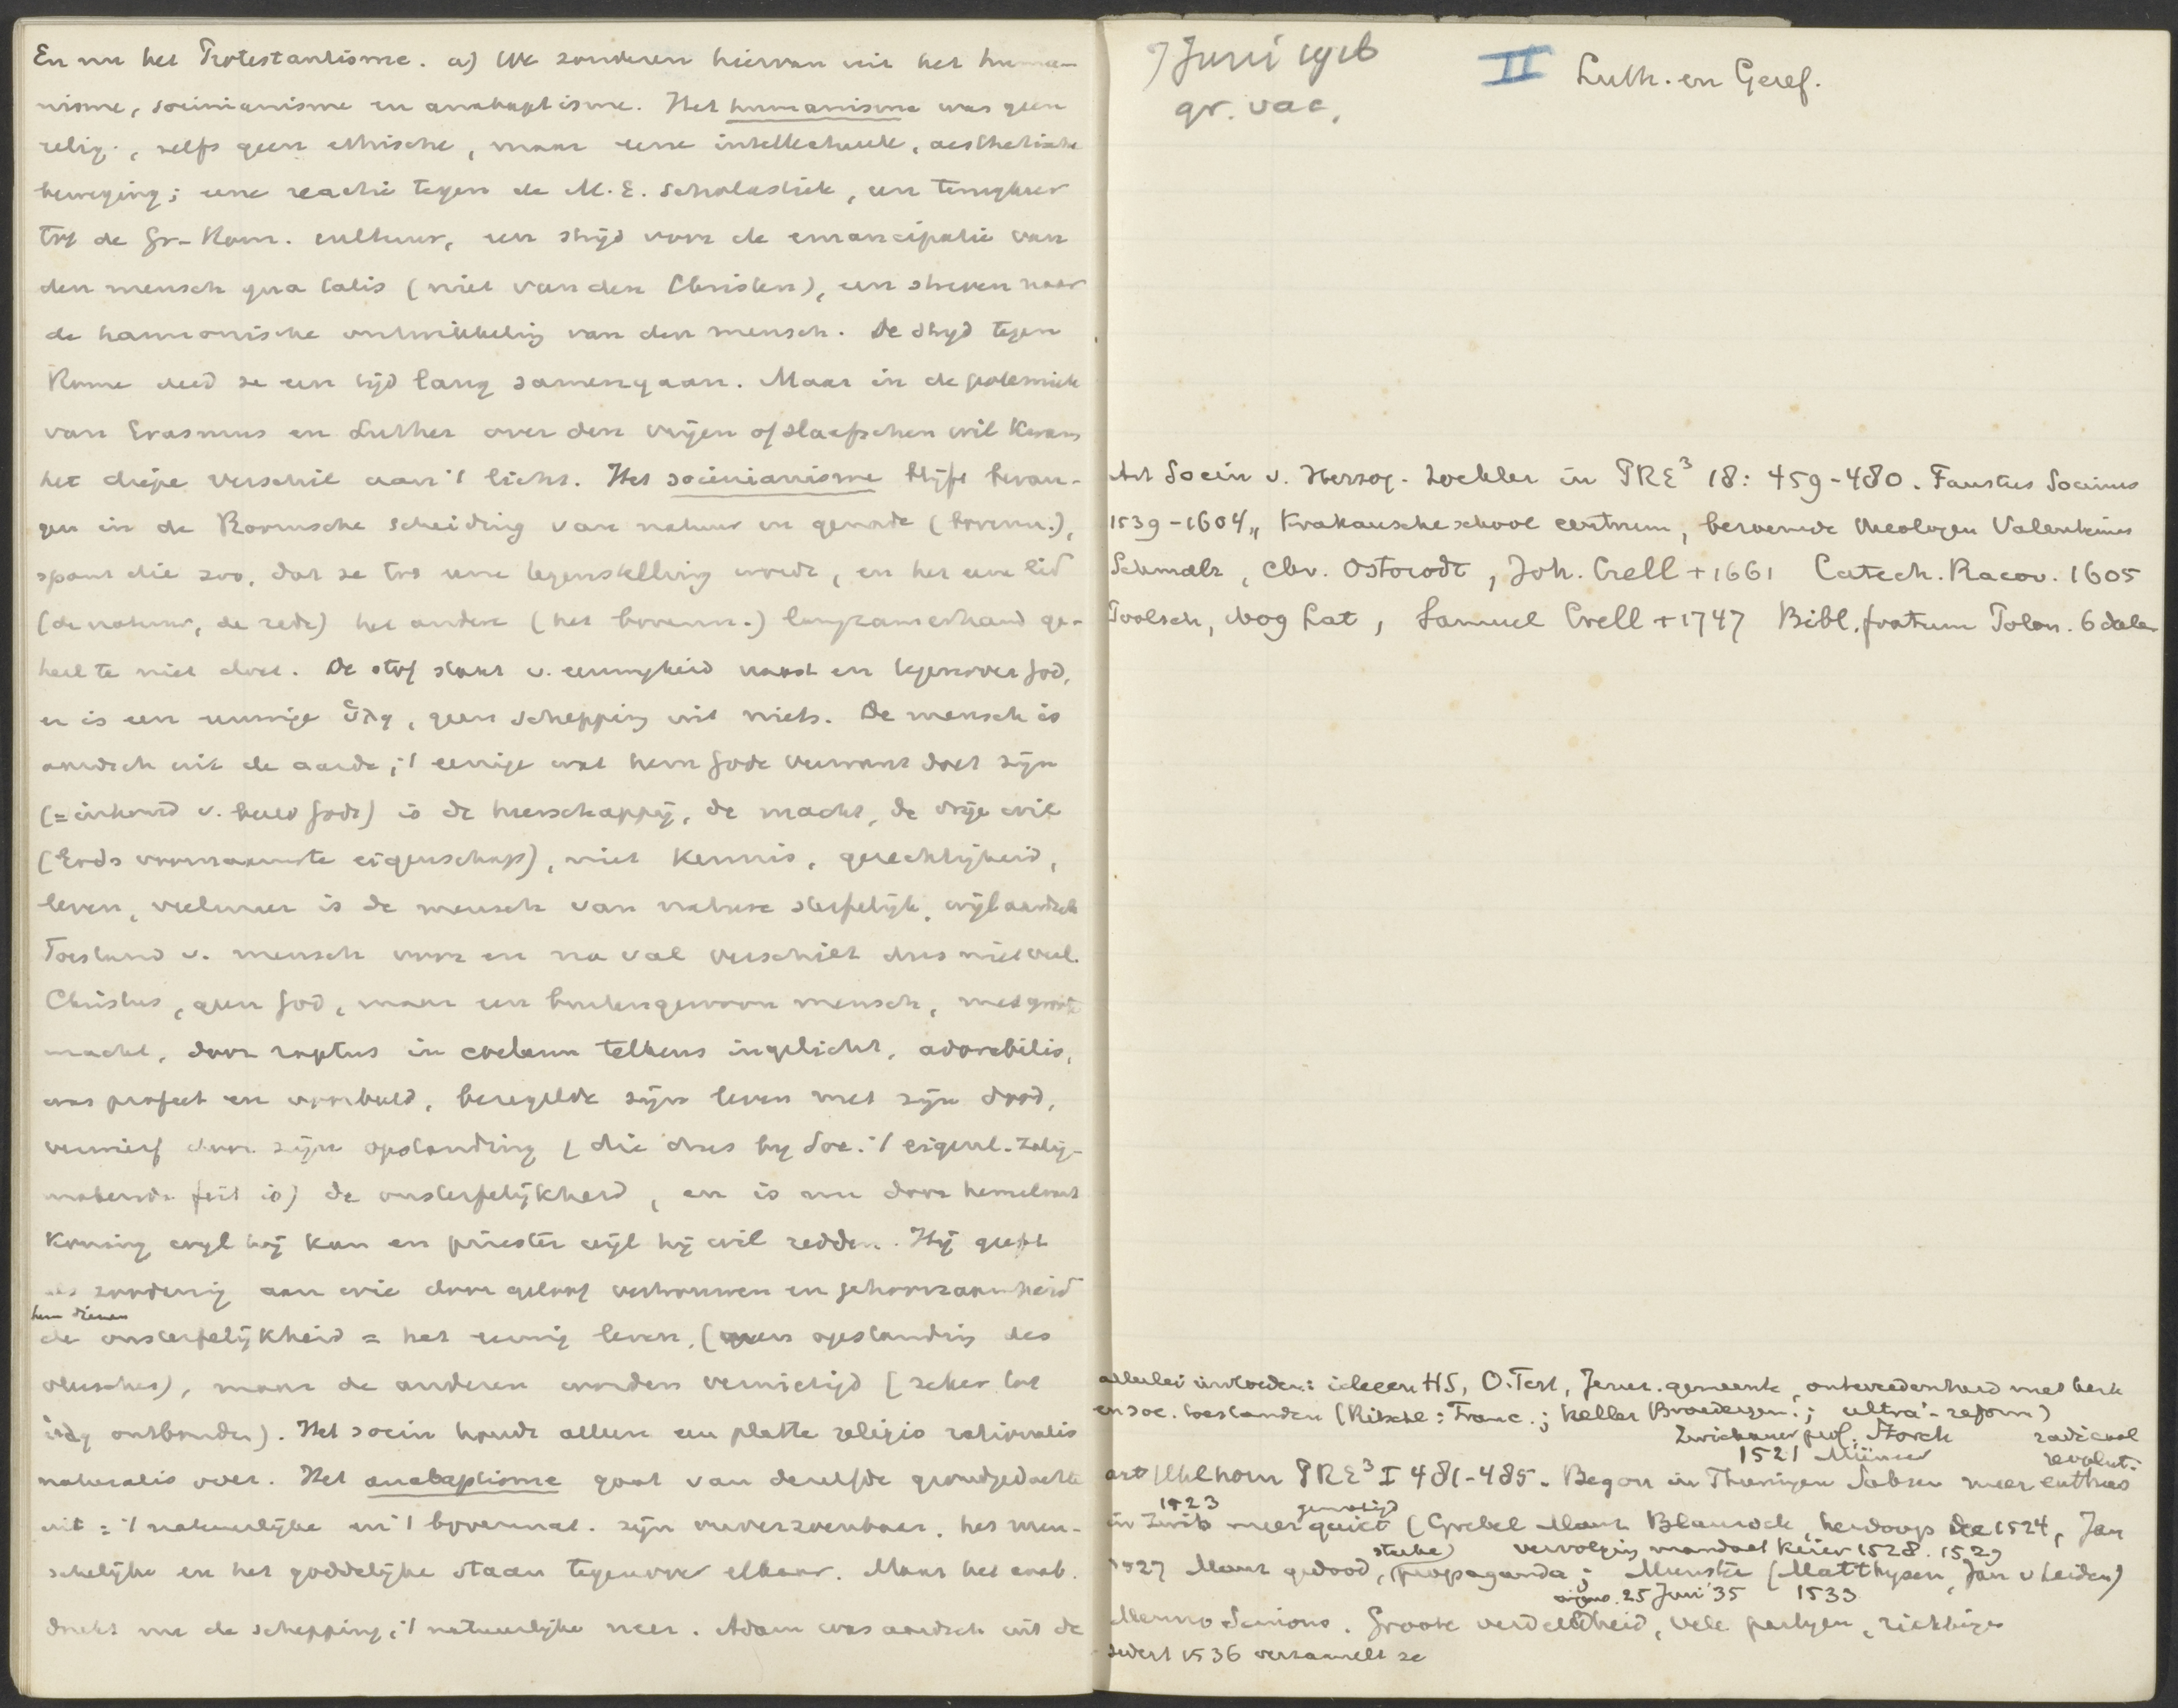 En nu het Protestantisme. a) We zonderen hiervan uit het huma-
nisme, socinianisme en anabaptisme. Het humanisme was geen
relig., zelfs geen ethische, maar eene intellectueele, aesthetische
beweging; eene reactie tegen de M.E. scholastiek, een terugkeer
tot de Gr-Rom. cultuur, een strijd voor de emancipatie van
den mensch qua talis (niet van den Christen), een streven naar
de harmonische ontwikkeling van den mensch. De strijd tegen
Rome deed ze een tijd lang samengaan. Maar in de polemiek
van Erasmus en Luther over den vrijen of slaafschen wil kwam
het diepe verschil aan 't licht. Het socinianisme blijft bevan-
gen in de Roomsche scheiding van natuur en genade (bovenn.),
spant die zoo, dat ze tot eene tegenstelling wordt, en het eene lid
(de natuur, de rede) het andere (het bovenn.) langzamerhand ge-
heel te niet doet. De stof staat v. eeuwigheid naast en tegenover God,
er is een eeuwige ὕλη, geen schepping uit niets. De mensch is
aardsch uit de aarde; 't eenige wat hem Gode verwant doet zijn
(= inhoud v. beeld Gods) is de heerschappij, de macht, de vrije wil
(Gods voornaamste eigenschap), niet kennis, gerechtigheid,
leven, veelmeer is de mensch van nature sterfelijk, wijl aardsch
Toestand v. mensch voor en na val verschilt dus niet veel.
Christus, geen God, maar een buitengewoon mensch, met groote
macht, door raptus in coelum telkens ingelicht, adorabilis,
was profeet en voorbeeld, bezegelde zijn leven met zijn dood,
verwierf door zijn opstanding (die dus bij Soc. 't eigenl. zalig-
makende feit is) de onsterfelijkheid, en is nu door hemelvaart
Koning wijl hij kan en priester wijl hij wil redden. Hij geeft
als zoodanig aan wie door geloof vertrouwen en gehoorzaamheid
hem dienen
de onsterfelijkheid = het eeuwig leven, (geen opstanding des
vleesches), maar de anderen worden vernietigd [zeker tot
ὕλη ontbonden). Het socin houdt alleen een platte religio rationalis
naturalis over. Het anabaptisme gaat van dezelfde grondgedachte
uit: 't natuurlijke en 't bovennat. zijn onverzoenbaar, het men-
schelijke en het goddelijke staan tegenover elkaar. Maar het anab.
drukt nu de schepping, 't natuurlijke neer. Adam was aardsch uit de
7 Juni 1916
gr. vac.
II Luth. en Geref.
Art Socin v. Herzog-Zöckler in PRE³ 18: 459-480. Faustus Socinus
1539-1604, Krakausche school centrum, beroemde theologen Valentinus
Schmalz, Chr. Ostorodt, Joh. Crell + 1661 Catech. Racov. 1605
Poolsch, 1609 Lat, Samuel Crell + 1747 Bibl. fratrum Polon. 6 deelen
allerlei invloeden: ideeen HS, O.Test, Jeruz. gemeente, ontevredenheid met kerk
en soc. toestanden (Ritschl: Franc.; Keller Broedergem.; ultra-reform)
Zwickauer prof. Storch radicaal
1521 Münzer revolut.
art Uhlhorn PRE³ I 481-485. Begon in Thuringen Saksen meer enthus
1523 gematigd
in Zurich meer quiet (Grebel Manz Blaurock, herdoop Dec 1524, Jan
sterke vervolging mandaat keizer 1528. 1529
1527 Manz gedood, propaganda; Munster (Matthysen, Jan v Leiden)
25 Juni '35 1533
Menno Simons. Groote verdeeldheid, vele partyen, richtingen
sedert 1536 verzamelt ze